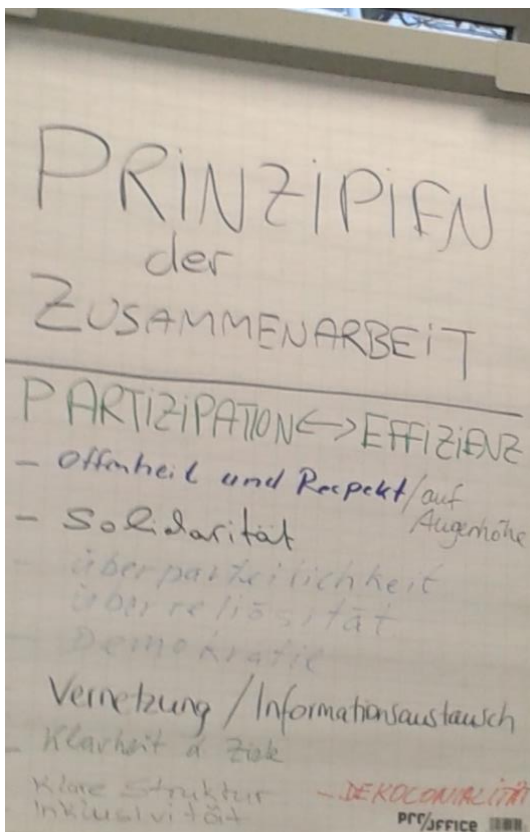 PRINZIPIEN
der
ZUSAMMENARBEIT
PARTIZIPATION <-> EFFIZIENZ
- Offenheit und Respekt / auf
Augenhöhe
- Solidarität
- überparteilichkeit
überreliösität
Demokratie
Vernetzung / Informationsaustausch
- Klarheit d Ziele
Klare Struktur
- DEKOLONIALITÄT
Inklusivität